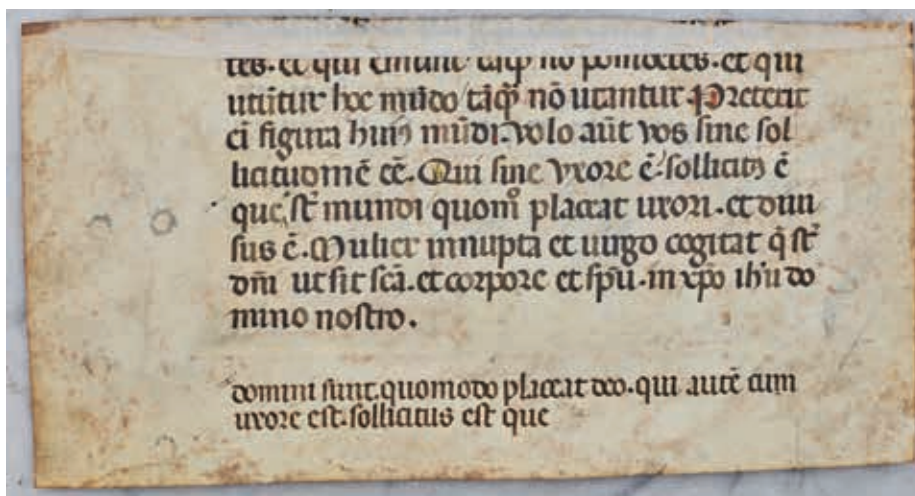 tes. et qui emunt tāq̄ nō possidētes. et qui
utūtur hoc mūdo tāq̄ nō utantur. Preterit
eī figura huiꝰ mūdi. volo aūt vos sine sol
licitudinē eē. Qui sine vxore ē. sollicitꝰ ē
que st̄ mundi quom̊ placeat uxori. et diui
sus ē. Mulier innupta et uirgo cogitat q̄ st̄
dn̄i ut sit sc̄a. et corpore et sp̄u. in xp̄o ih̄u do
mino nostro.
domini sunt. quomodo placeat deo. qui autē cum
uxore est. sollicitus est que